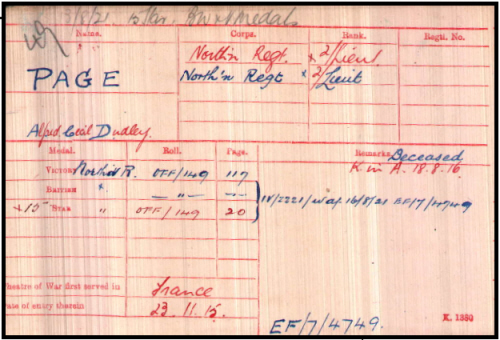 3/8/21. 15 Star. BW & V Medals
Name. Corps. Rank. Regtl. No.
North'n Regt. x 2/Lieut.
PAGE North'n Regt x 2/Lieut
Alfred Cecil Dudley.
Medal. Roll. Page. Remarks. Deceased
VICTORY North'n R. OFF/149 117 K. in A. 18.8.16.
BRITISH — „ — — „ —
x 15 STAR „ OFF/149 20 EF/7/4749
Theatre of War first served in France
Date of entry therein 23.11.15.
EF/7/4749. K. 1380